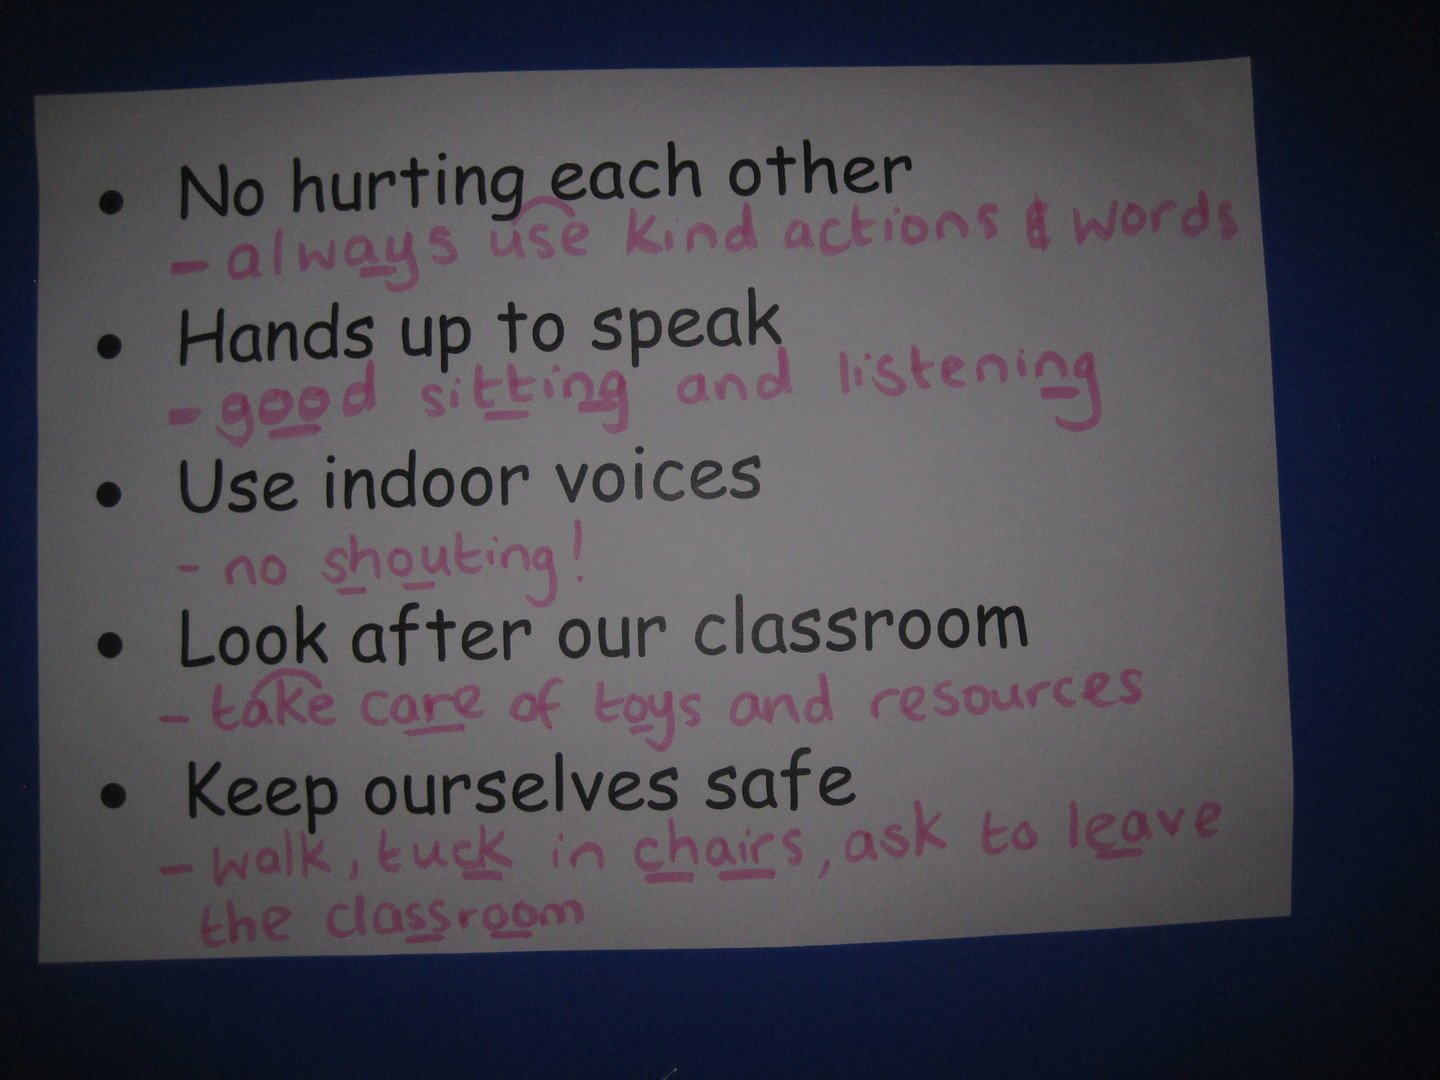 • No hurting each other
- always use kind actions & words
• Hands up to speak
- good sitting and listening
• Use indoor voices
- no shouting!
• Look after our classroom
- take care of toys and resources
• Keep ourselves safe
- walk, tuck in chairs, ask to leave
the classroom